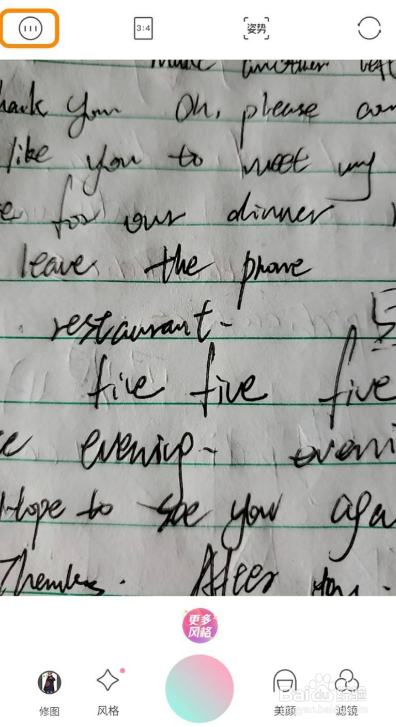 3:4
姿势
make another
hank you Oh, please
like you to meet my
for our dinner
leave the phone
restaurant-
five five five
evening- eveni
Hope to see you aga
After you.
更多
风格
修图
风格
美颜
滤镜
Baidu经验